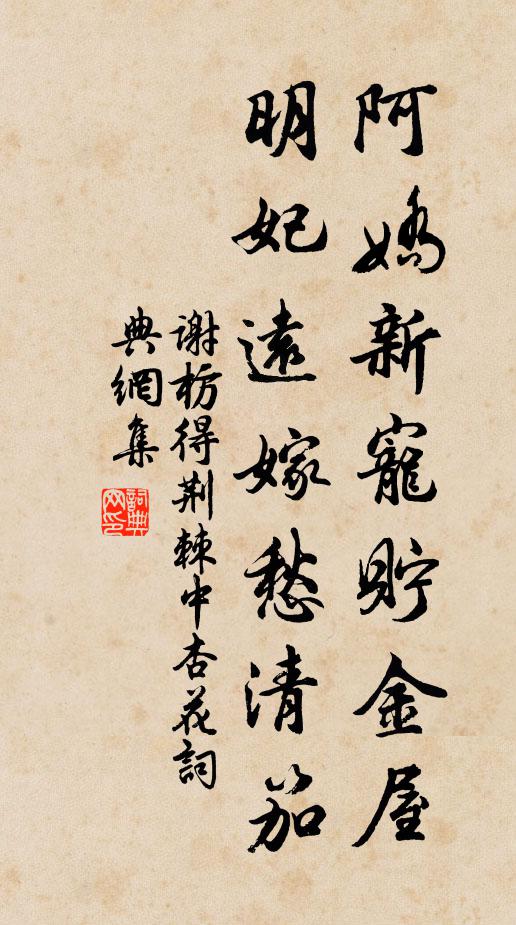 阿嬌新寵貯金屋
明妃遠嫁愁清笳
谢枋得荆棘中杏花詞
典網集
詞典
网印